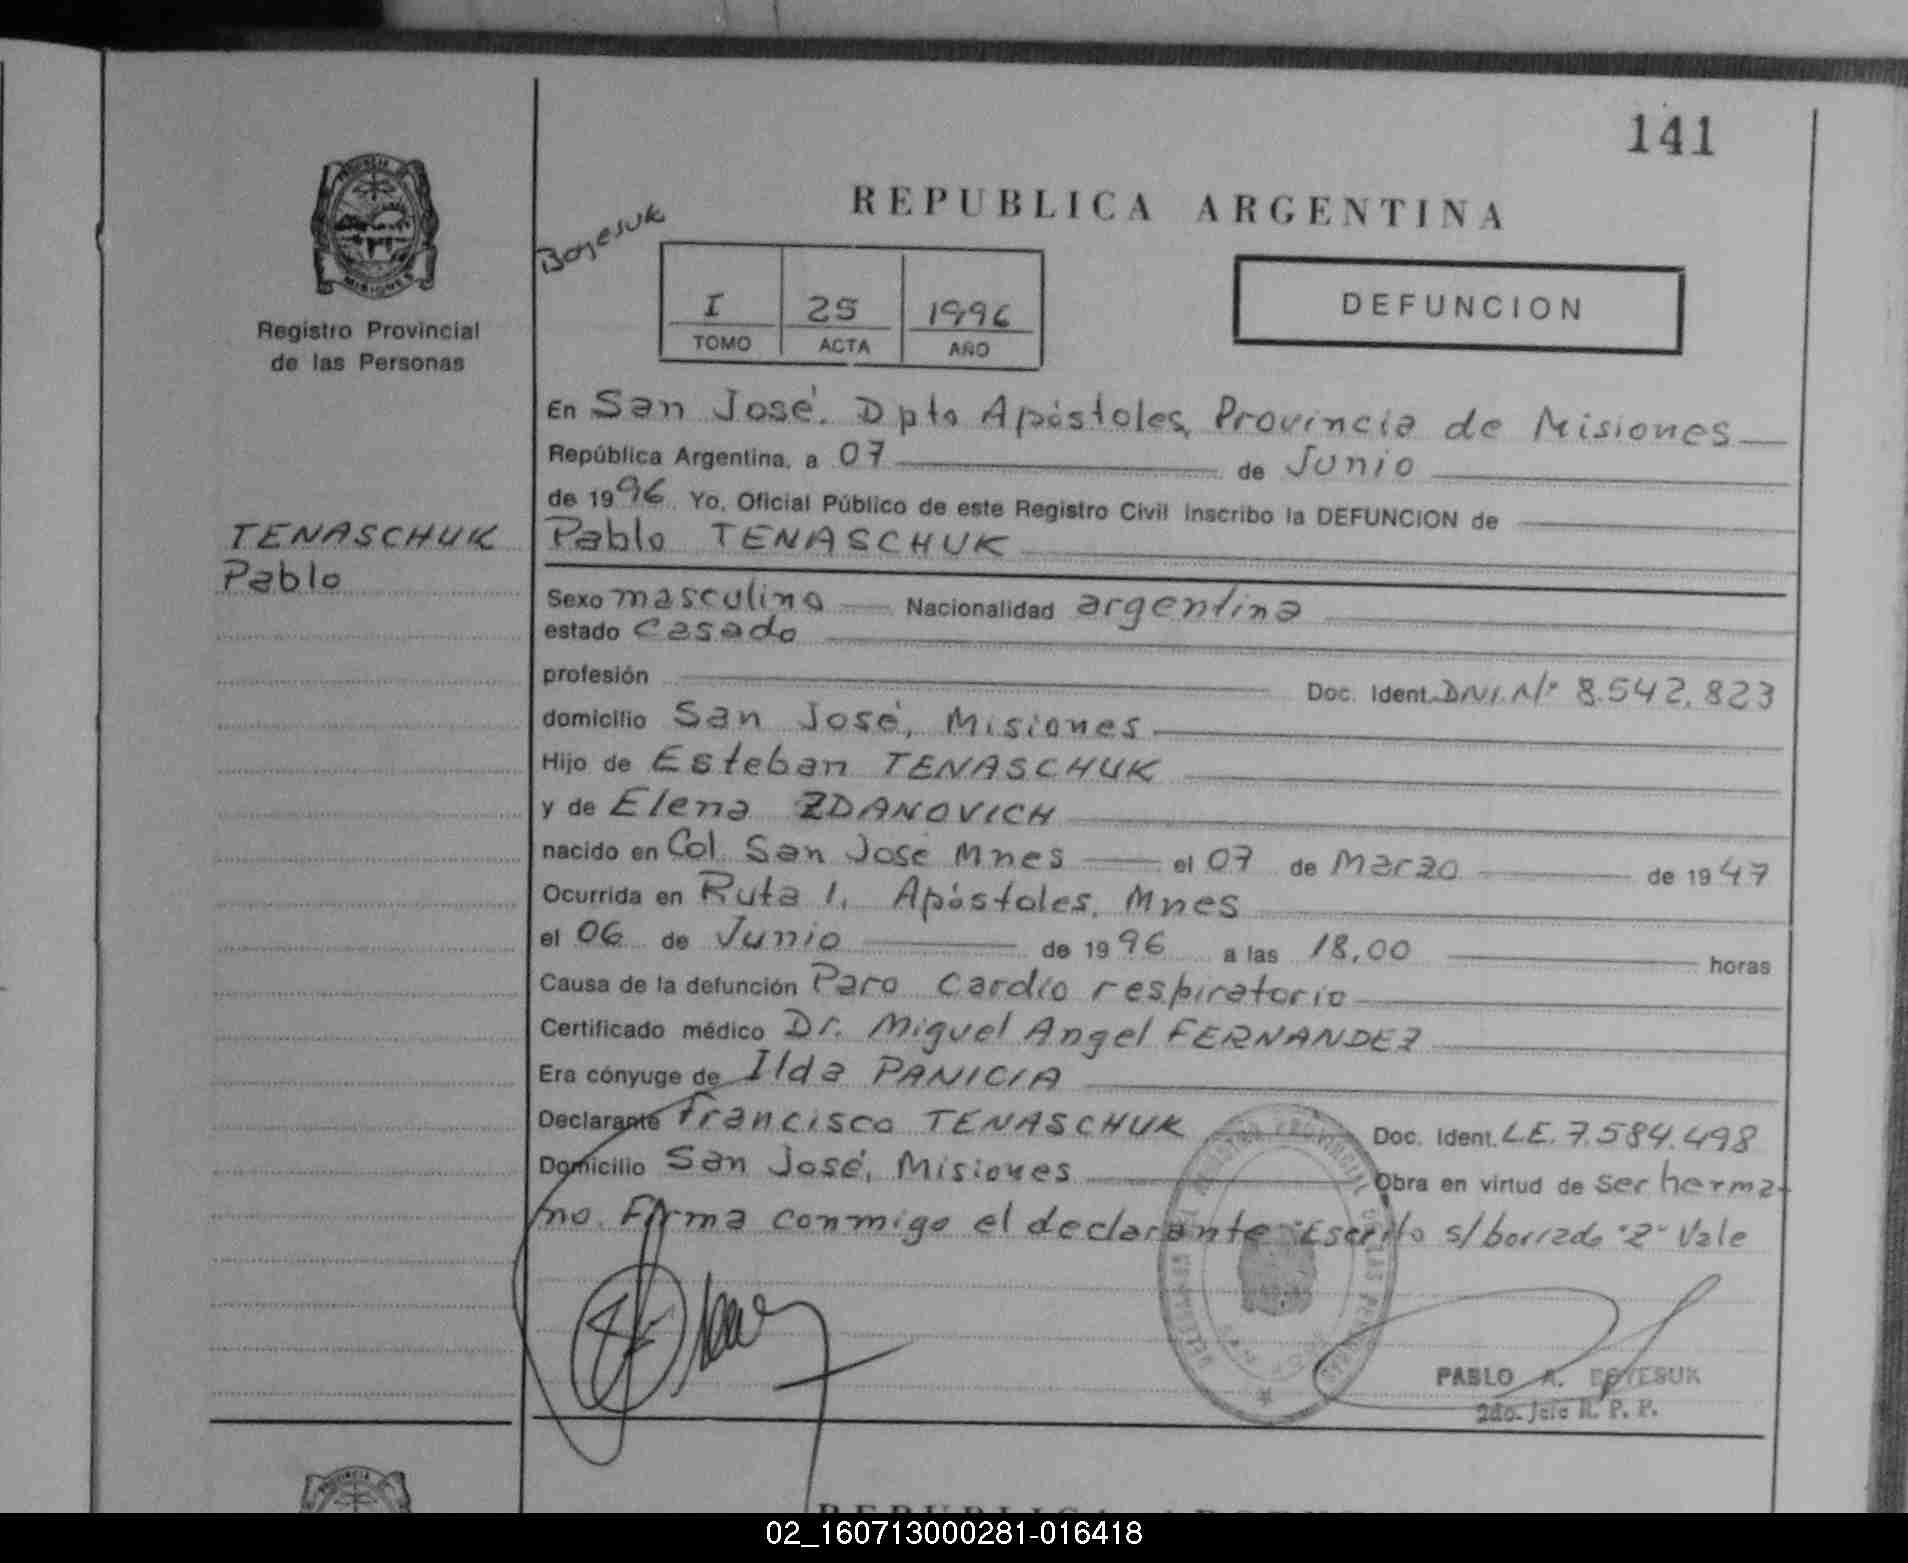 141
REPUBLICA ARGENTINA
PROVINCIA DE
MISIONES
Registro Provincial
de las Personas
Boyesuk
I 25 1996
TOMO ACTA AÑO
DEFUNCION
En San José. Dpto Apóstoles, Provincia de Misiones
República Argentina, a 07 de Junio
de 1996 Yo, Oficial Público de este Registro Civil inscribo la DEFUNCION de
TENASCHUK
Pablo
Pablo TENASCHUK
Sexo masculino Nacionalidad argentina
estado casado
profesión Doc. Ident. DNI. Nº 8.542.823
domicilio San José, Misiones
Hijo de Esteban TENASCHUK
y de Elena ZDANOVICH
nacido en Col. San José Mnes el 07 de Marzo de 1947
Ocurrida en Ruta 1, Apóstoles, Mnes
el 06 de Junio de 1996 a las 18,00 horas
Causa de la defunción Paro Cardio respiratorio
Certificado médico Dr. Miguel Angel FERNANDEZ
Era cónyuge de Ilda PANICIA
Declarante Francisco TENASCHUK Doc. Ident. L.E. 7.584.498
Domicilio San José, Misiones Obra en virtud de ser herma-
no. Firma conmigo el declarante "Escrito s/borrado "Z" Vale
PABLO A. BOYESUK
2do. Jefe R. P. P.
REPUBLICA ARGENTINA
02_160713000281-016418